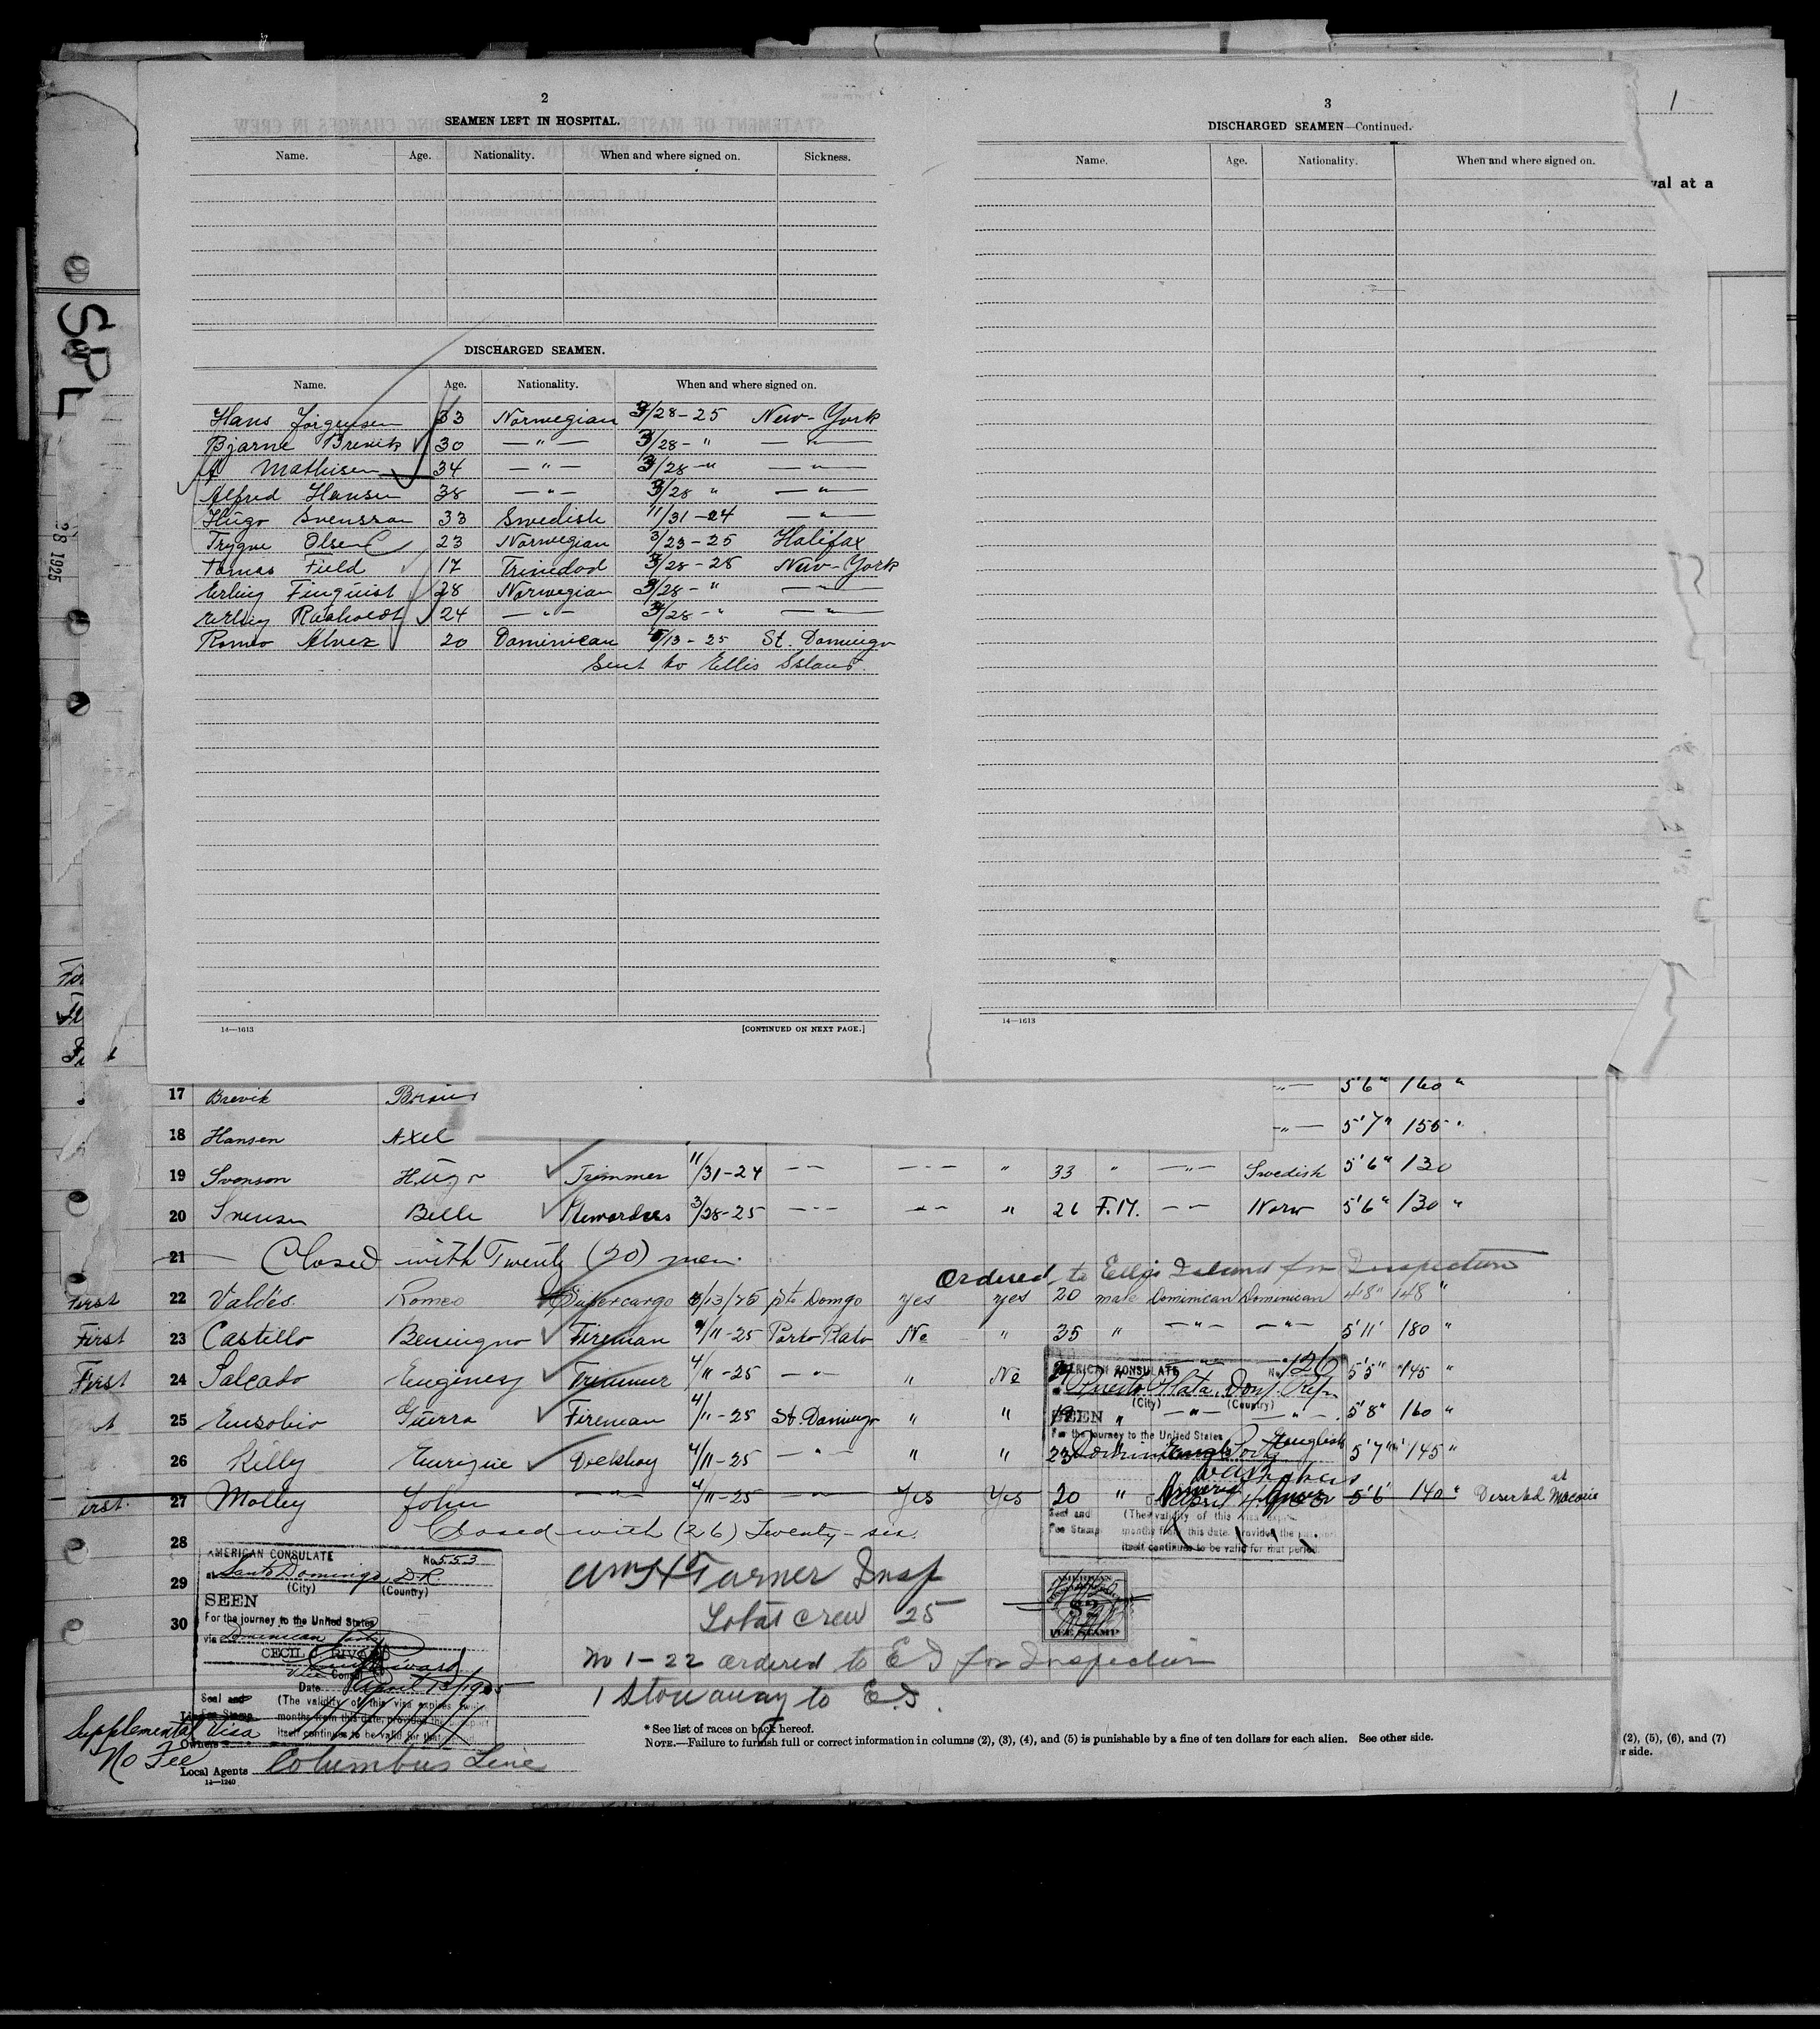 2
SEAMEN LEFT IN HOSPITAL.
Name. Age. Nationality. When and where signed on. Sickness.
DISCHARGED SEAMEN.
Name. Age. Nationality. When and where signed on.
Hans Jörgensen 33 Norwegian 3/28-25 New-York
Bjarne Brevik 30 —"— 3/28-" —"—
Mathisen 34 —"— 3/28-" —"—
Alfred Hansen 38 —"— 3/28 " —"—
Hugo Svensson 33 Swedish 11/31-24 —"—
Trygve Olsen 23 Norwegian 3/23-25 Halifax
Tomas Field 17 Trinedad 3/28-25 New-York
Erling Finquist 28 Norwegian 3/28-" —"—
Erling 24 —"— 3/28-" —"—
Romeo Alvez 20 Dominican /13-25 St. Domingo
Sent to Ellis Island.
14—1613
[CONTINUED ON NEXT PAGE.]
3
DISCHARGED SEAMEN—Continued.
Name. Age. Nationality. When and where signed on.
14—1613
1
val at a
SPL
28 1925
17 Brevik 5'6" 160 "
18 Hansen Axel —"— 5'7" 155 "
19 Svenson Hugo Trimmer 11/31-24 —"— —"— " 33 " —"— Swedish 5'6" 130
20 Belle Stewardess 3/28-25 —"— —"— " 26 F.M. —"— Norw 5'6" 130 "
21 Closed with Twenty (20) men.
Ordered to Ellis Island for Inspection
First 22 Valdés Romeo Supercargo /13/25 Sto Domgo yes yes 20 male Dominican Dominican 4'8" 148 "
First 23 Castillo Benigno Fireman 4/11-25 Porto Plato No " 35 " —"— —"— 5'11" 180 "
First 24 Salcado Trimmer 4/11-25 —"— " No 5'5" 145 "
25 Eusobio Guerra Fireman 4/11-25 St. Domingo " " 19 " —"— —"— 5'8" 160 "
26 Killy Deckboy 4/11-25 —"— " " 23 English 5'7" 145 "
27 Molley John 4/11-25 —"— Yes Yes 20 " 5'6" 140 " Deserted at Macoris
28 Closed with (26) Twenty-six.
29
30
AMERICAN CONSULATE No. 126
at Puerto Plata, Dom. Rep.
(City) (Country)
SEEN
For the journey to the United States
Seal and Fee Stamp
(The validity of this visa
months from this date, provided the passport
itself continues to be valid for that period.
AMERICAN
FEE STAMP
AMERICAN CONSULATE No. 553
at Santo Domingo, D.R.
(City) (Country)
SEEN
For the journey to the United States
via Dominican Ports
CECIL
Vice Consul
Date April 13/1925
Seal and
Fee Stamp
(The validity of this visa expires
months from this date, provided the passport
itself continues to be valid for that
Wm H Turner Insp
Total crew 25
No 1-22 ordered to E I for Inspection
1 Stowaway to E I.
Supplemental Visa
No Fee
Owners
Local Agents Columbus Line
14—1240
* See list of races on back hereof.
NOTE.—Failure to furnish full or correct information in columns (2), (3), (4), and (5) is punishable by a fine of ten dollars for each alien. See other side.
(2), (5), (6), and (7)
r side.